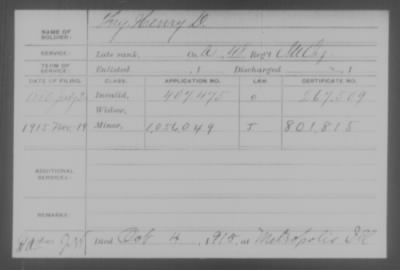 NAME OF SOLDIER: Henry D.
SERVICE: Late rank, Co. A, 48 Reg't Ill. Inf.
TERM OF SERVICE: Enlisted , 1 Discharged , 1
DATE OF FILING. CLASS. APPLICATION NO. LAW. CERTIFICATE NO.
Invalid, 407475 267,509
Widow,
1915 Nov. 19 Minor, 1,056,049 801,815
ADDITIONAL SERVICES:
REMARKS:
Died 4, 1915, at Metropolis Ill